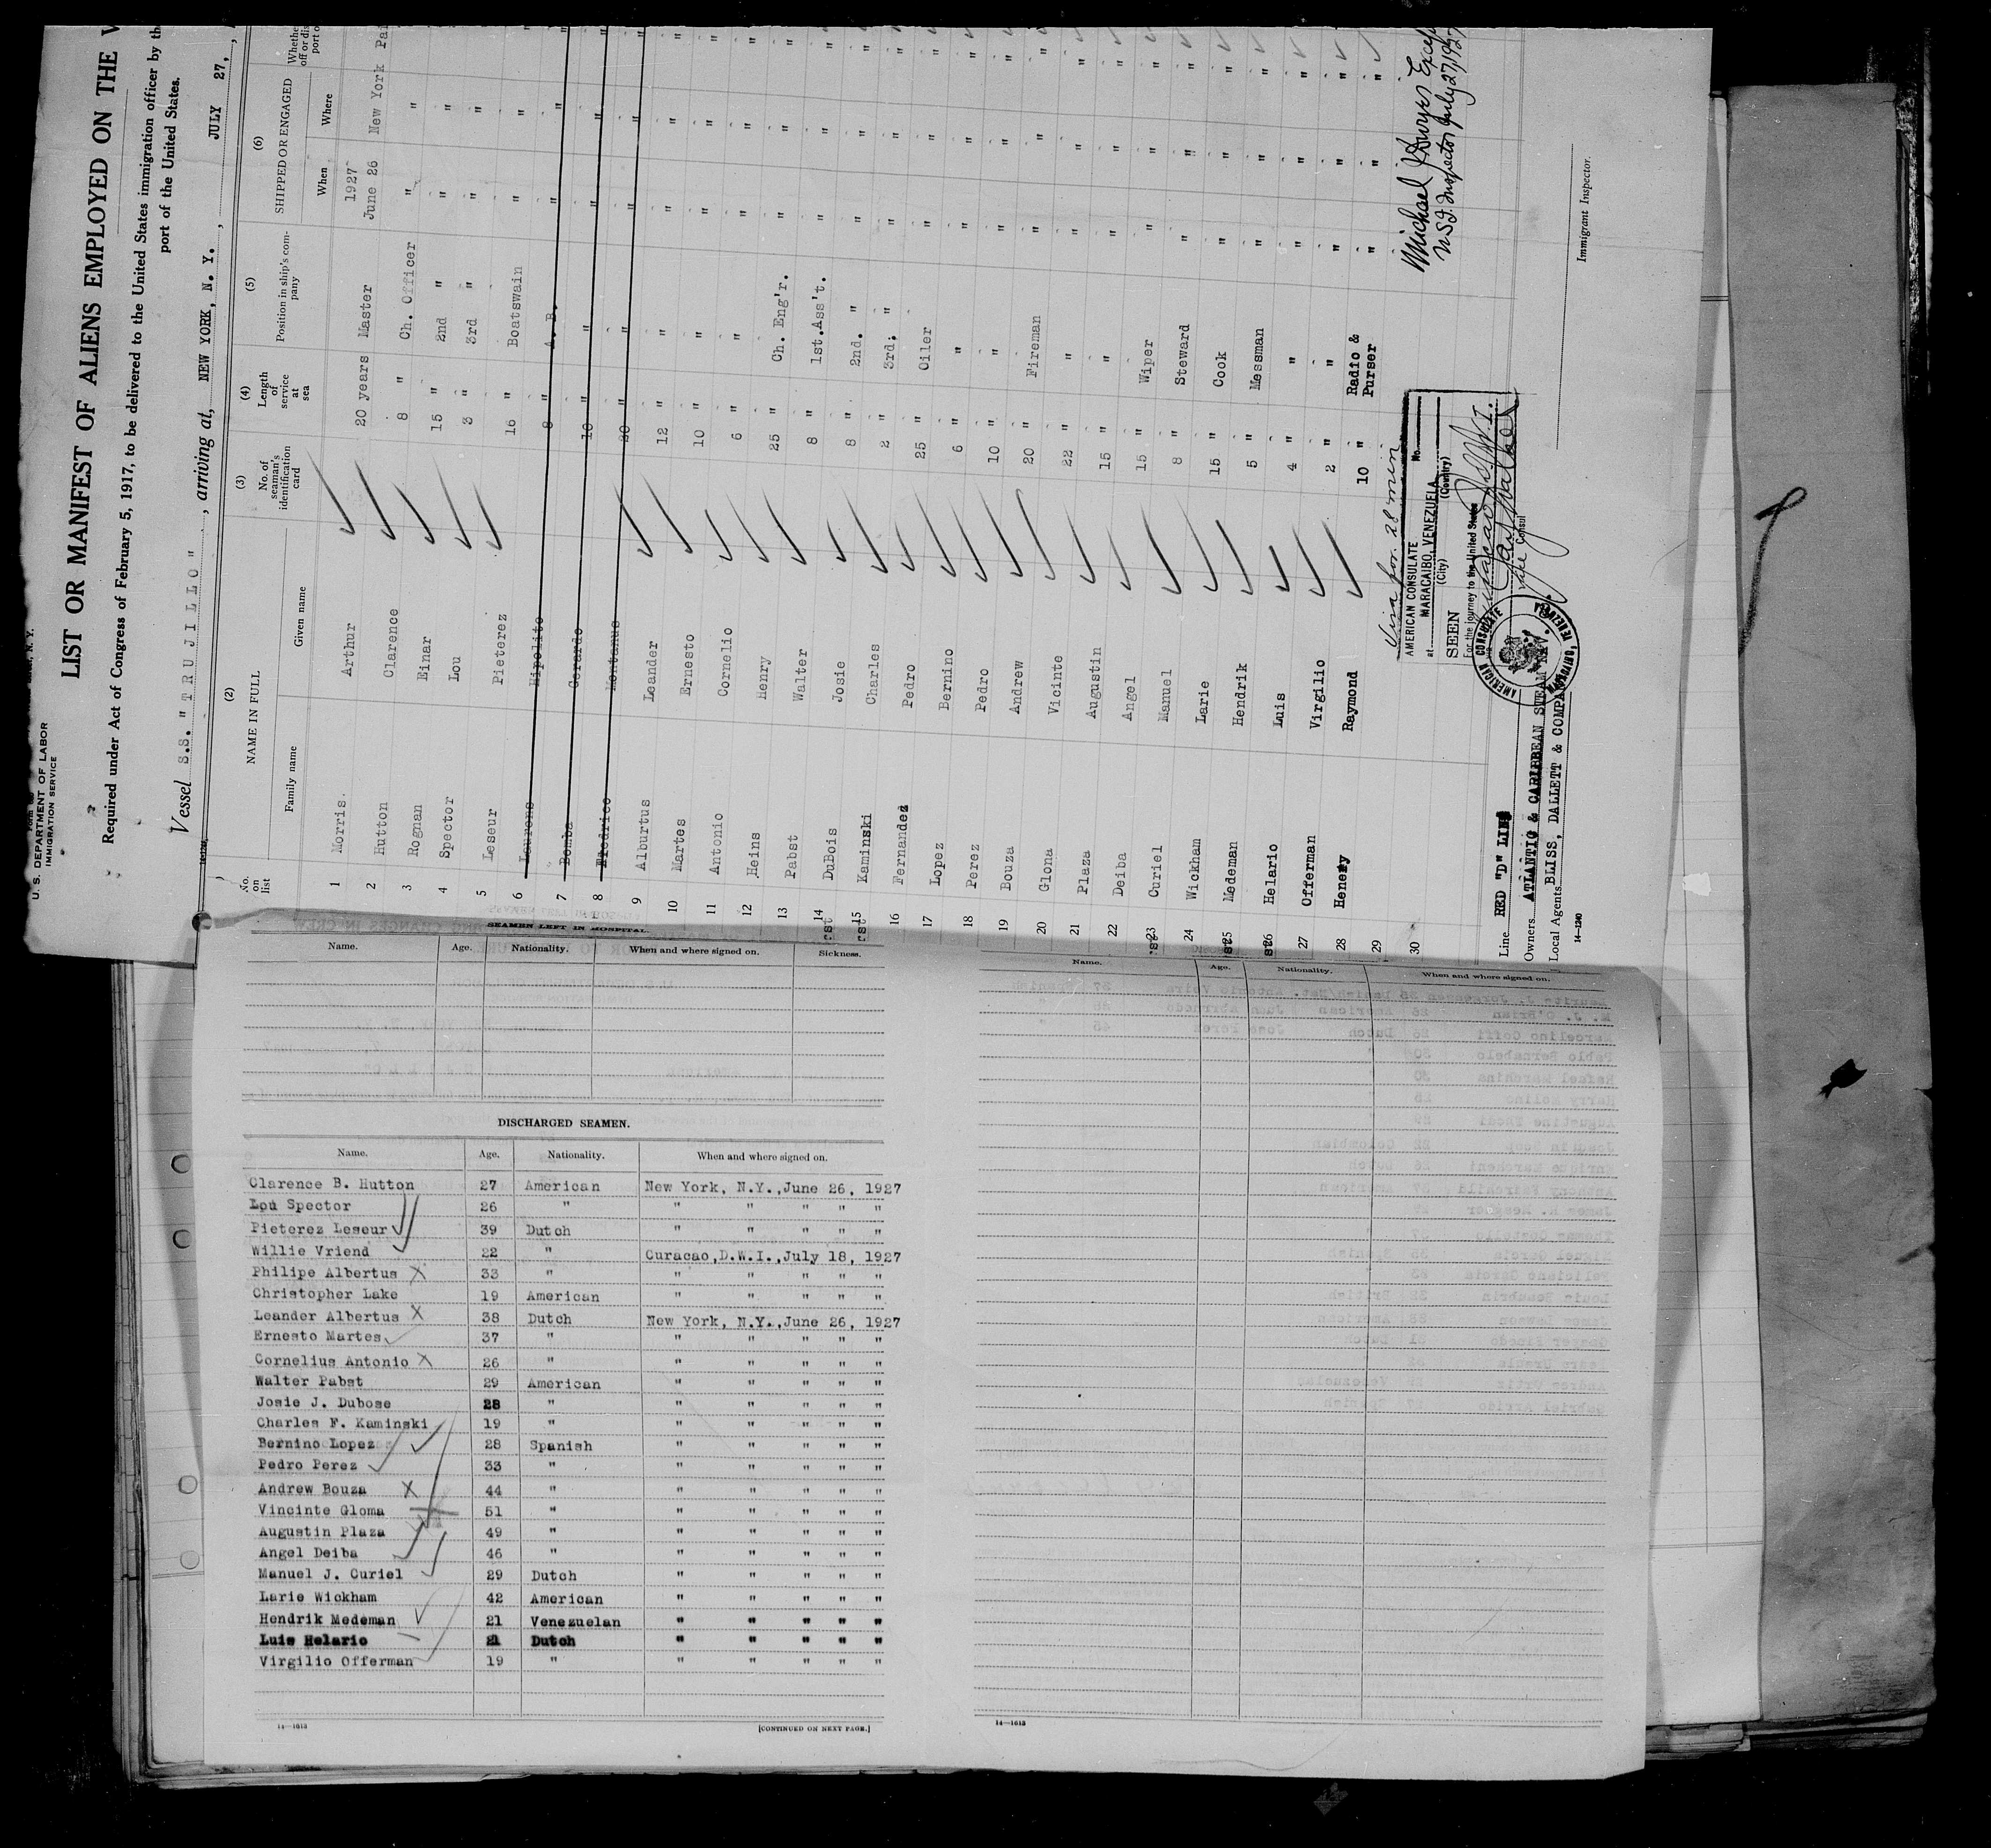 U. S. DEPARTMENT OF LABOR
IMMIGRATION SERVICE
LIST OR MANIFEST OF ALIENS EMPLOYED ON THE V
Required under Act of Congress of February 5, 1917, to be delivered to the United States immigration officer by th
port of the United States.
Vessel S.S. "TRUJILLO" , arriving at, NEW YORK, N. Y. , JULY 27,
No. on list (2) NAME IN FULL Family name Given name (3) No. of seaman's identification card (4) Length of service at sea (5) Position in ship's company (6) SHIPPED OR ENGAGED When Where
1 Morris. Arthur 20 years Master 1927 June 26 New York Pai
2 Hutton Clarence 8 " Ch. Officer " "
3 Rognan Einar 15 " 2nd " " "
4 Spector Lou 3 " 3rd " " "
5 Leseur Pieterez 16 " Boatswain " "
6 Laurens Hipolito 8 " A. B. " "
7 Bomba Gerardo 10 " " " "
8 Fredrico Montanus 20 " " " "
9 Alburtus Leander 12 " " " "
10 Martes Ernesto 10 " " " "
11 Antonio Cornelio 6 " " " "
12 Heins Henry 25 " Ch. Eng'r. " "
13 Pabst Walter 8 " 1st.Ass't. " "
14 DuBois Josie 8 " 2nd. " " "
15 Kaminski Charles 2 " 3rd. " " "
16 Fernandez Pedro 25 " Oiler " "
17 Lopez Bernino 6 " " " "
18 Perez Pedro 10 " " " "
19 Bouza Andrew 20 " Fireman " "
20 Glona Vicinte 22 " " " "
21 Plaza Augustin 15 " " " "
22 Deiba Angel 15 " Wiper " "
23 Curiel Manuel 8 " Steward " "
24 Wickham Larie 15 " Cook " "
25 Medeman Hendrik 5 " Messman " "
26 Helario Luis 4 " " " "
27 Offerman Virgilio 2 " " " "
28 Henery Raymond 10 " Radio & Purser " "
29
30
Michael J Dwyer Excep
U.S.I. Inspector July 27, 1927
Immigrant Inspector.
Visa for 28 men
AMERICAN CONSULATE No.
at MARACAIBO, VENEZUELA
(City) (Country)
SEEN
For the journey to the United States
Vice Consul
AMERICAN CONSULATE
Line RED "D" LINE
Owners ATLANTIC & CARIBBEAN STEAM NAV.
Local Agents BLISS, DALLETT & COMPA
14—1240
SEAMEN LEFT IN HOSPITAL.
Name. Age. Nationality. When and where signed on. Sickness.
DISCHARGED SEAMEN.
Name. Age. Nationality. When and where signed on.
Clarence B. Hutton 27 American New York, N.Y.,June 26, 1927
Lou Spector 26 " " " " " "
Pieterez Leseur 39 Dutch " " " " "
Willie Vriend 22 " Curacao,D.W.I.,July 18, 1927
Philipe Albertus 33 " " " " " "
Christopher Lake 19 American " " " " "
Leander Albertus 38 Dutch New York, N.Y.,June 26, 1927
Ernesto Martes 37 " " " " " "
Cornelius Antonio 26 " " " " " "
Walter Pabst 29 American " " " " "
Josie J. Dubose 28 " " " " " "
Charles F. Kaminski 19 " " " " " "
Bernino Lopez 28 Spanish " " " " "
Pedro Perez 33 " " " " " "
Andrew Bouza 44 " " " " " "
Vincinte Gloma 51 " " " " " "
Augustin Plaza 49 " " " " " "
Angel Deiba 46 " " " " " "
Manuel J. Curiel 29 Dutch " " " " "
Larie Wickham 42 American " " " " "
Hendrik Medeman 21 Venezuelan " " " " "
Luis Helario 21 Dutch " " " " "
Virgilio Offerman 19 " " " " " "
14—1613 [CONTINUED ON NEXT PAGE.]
Name. Age. Nationality. When and where signed on.
14—1613